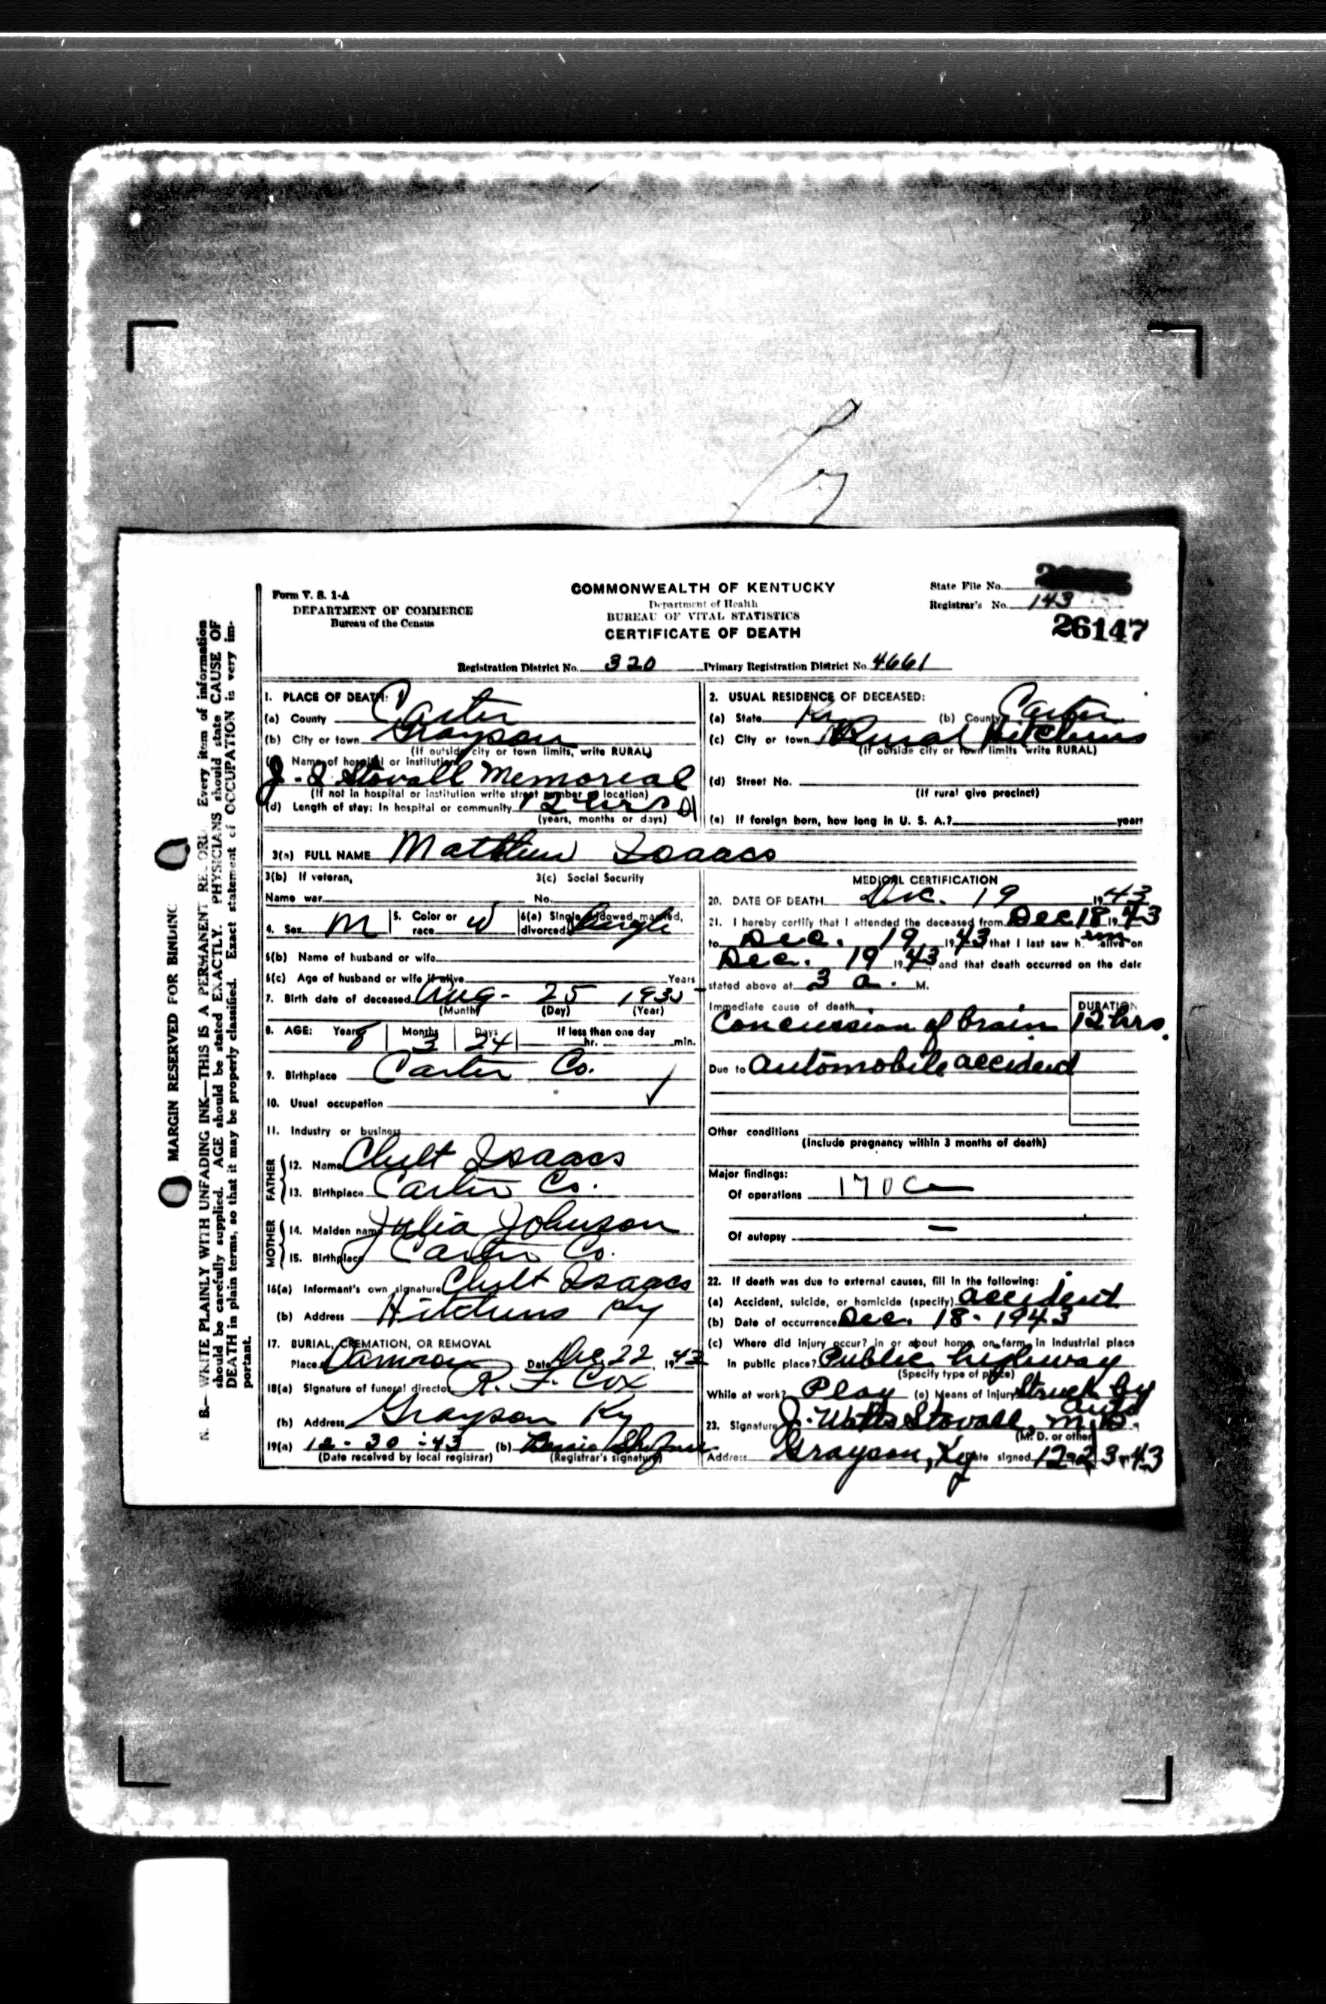 Form V. S. 1-A
DEPARTMENT OF COMMERCE
Bureau of the Census
COMMONWEALTH OF KENTUCKY
Department of Health
BUREAU OF VITAL STATISTICS
CERTIFICATE OF DEATH
State File No.
Registrar's No. 143
26147
Registration District No. 320 Primary Registration District No. 4661
MARGIN RESERVED FOR BINDING
N. B.—WRITE PLAINLY WITH UNFADING INK—THIS IS A PERMANENT RECORD. Every item of information
should be carefully supplied. AGE should be stated EXACTLY. PHYSICIANS should state CAUSE OF
DEATH in plain terms, so that it may be properly classified. Exact statement of OCCUPATION is very im-
portant.
1. PLACE OF DEATH:
(a) County Carter
(b) City or town Grayson
(If outside city or town limits, write RURAL)
(c) Name of hospital or institution
J. S. Stovall Memorial
(If not in hospital or institution write street number or location)
(d) Length of stay: In hospital or community 12 hrs
(years, months or days)
2. USUAL RESIDENCE OF DECEASED:
(a) State Ky (b) County Carter
(c) City or town Rural Hitchins
(If outside city or town limits write RURAL)
(d) Street No.
(If rural give precinct)
(e) If foreign born, how long in U. S. A.? years
3(a) FULL NAME Matthew Isaacs
3(b) If veteran, 3(c) Social Security
Name war No.
4. Sex M 5. Color or race W 6(a) Single, widowed, married, divorced Single
6(b) Name of husband or wife
6(c) Age of husband or wife if alive Years
7. Birth date of deceased Aug- 25 1935
(Month) (Day) (Year)
8. AGE: Years 8 Months 3 Days 24 If less than one day
hr. min.
9. Birthplace Carter Co.
10. Usual occupation
11. Industry or business
FATHER
12. Name Chilt Isaacs
13. Birthplace Carter Co.
MOTHER
14. Maiden name Julia Johnson
15. Birthplace Carter Co.
16(a) Informant's own signature Chilt Isaacs
(b) Address Hitchins Ky
17. BURIAL, CREMATION, OR REMOVAL
Place Date Dec 22, 1943
18(a) Signature of funeral director R. F. Cox
(b) Address Grayson Ky
19(a) 12-30-43 (b)
(Date received by local registrar) (Registrar's signature)
MEDICAL CERTIFICATION
20. DATE OF DEATH Dec. 19 1943
21. I hereby certify that I attended the deceased from Dec 18 1943
to Dec. 19, 1943 that I last saw him alive on
Dec. 19 1943, and that death occurred on the date
stated above at 3 a. M.
Immediate cause of death DURATION
Concussion of brain 12 hrs.
Due to automobile accident
Other conditions
(Include pregnancy within 3 months of death)
Major findings:
Of operations 170C
Of autopsy —
22. If death was due to external causes, fill in the following:
(a) Accident, suicide, or homicide (specify) accident
(b) Date of occurrence Dec. 18-1943
(c) Where did injury occur? in or about home, on farm, in industrial place
In public place? Public highway
(Specify type of place)
While at work? Play (e) Means of injury Struck by auto
23. Signature J. Watts Stovall, M.D.
(M. D. or other)
Address Grayson, Ky Date signed 12-23-43